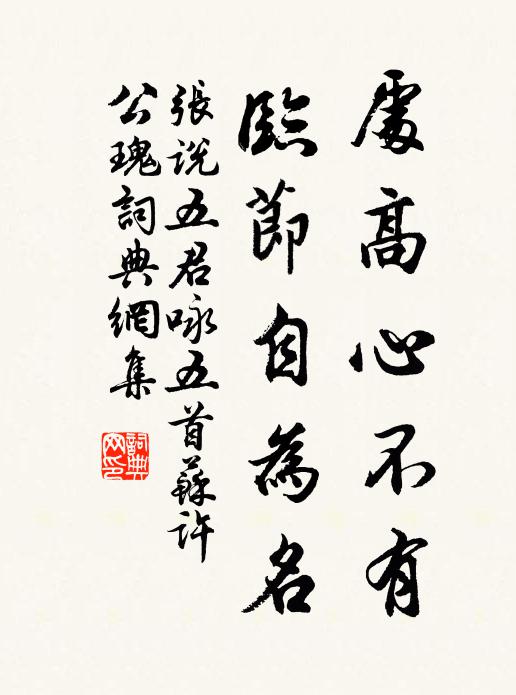 處高心不有
臨節自為名
張說五君咏五首蘇許
公瑰詞典網集
詞典网印